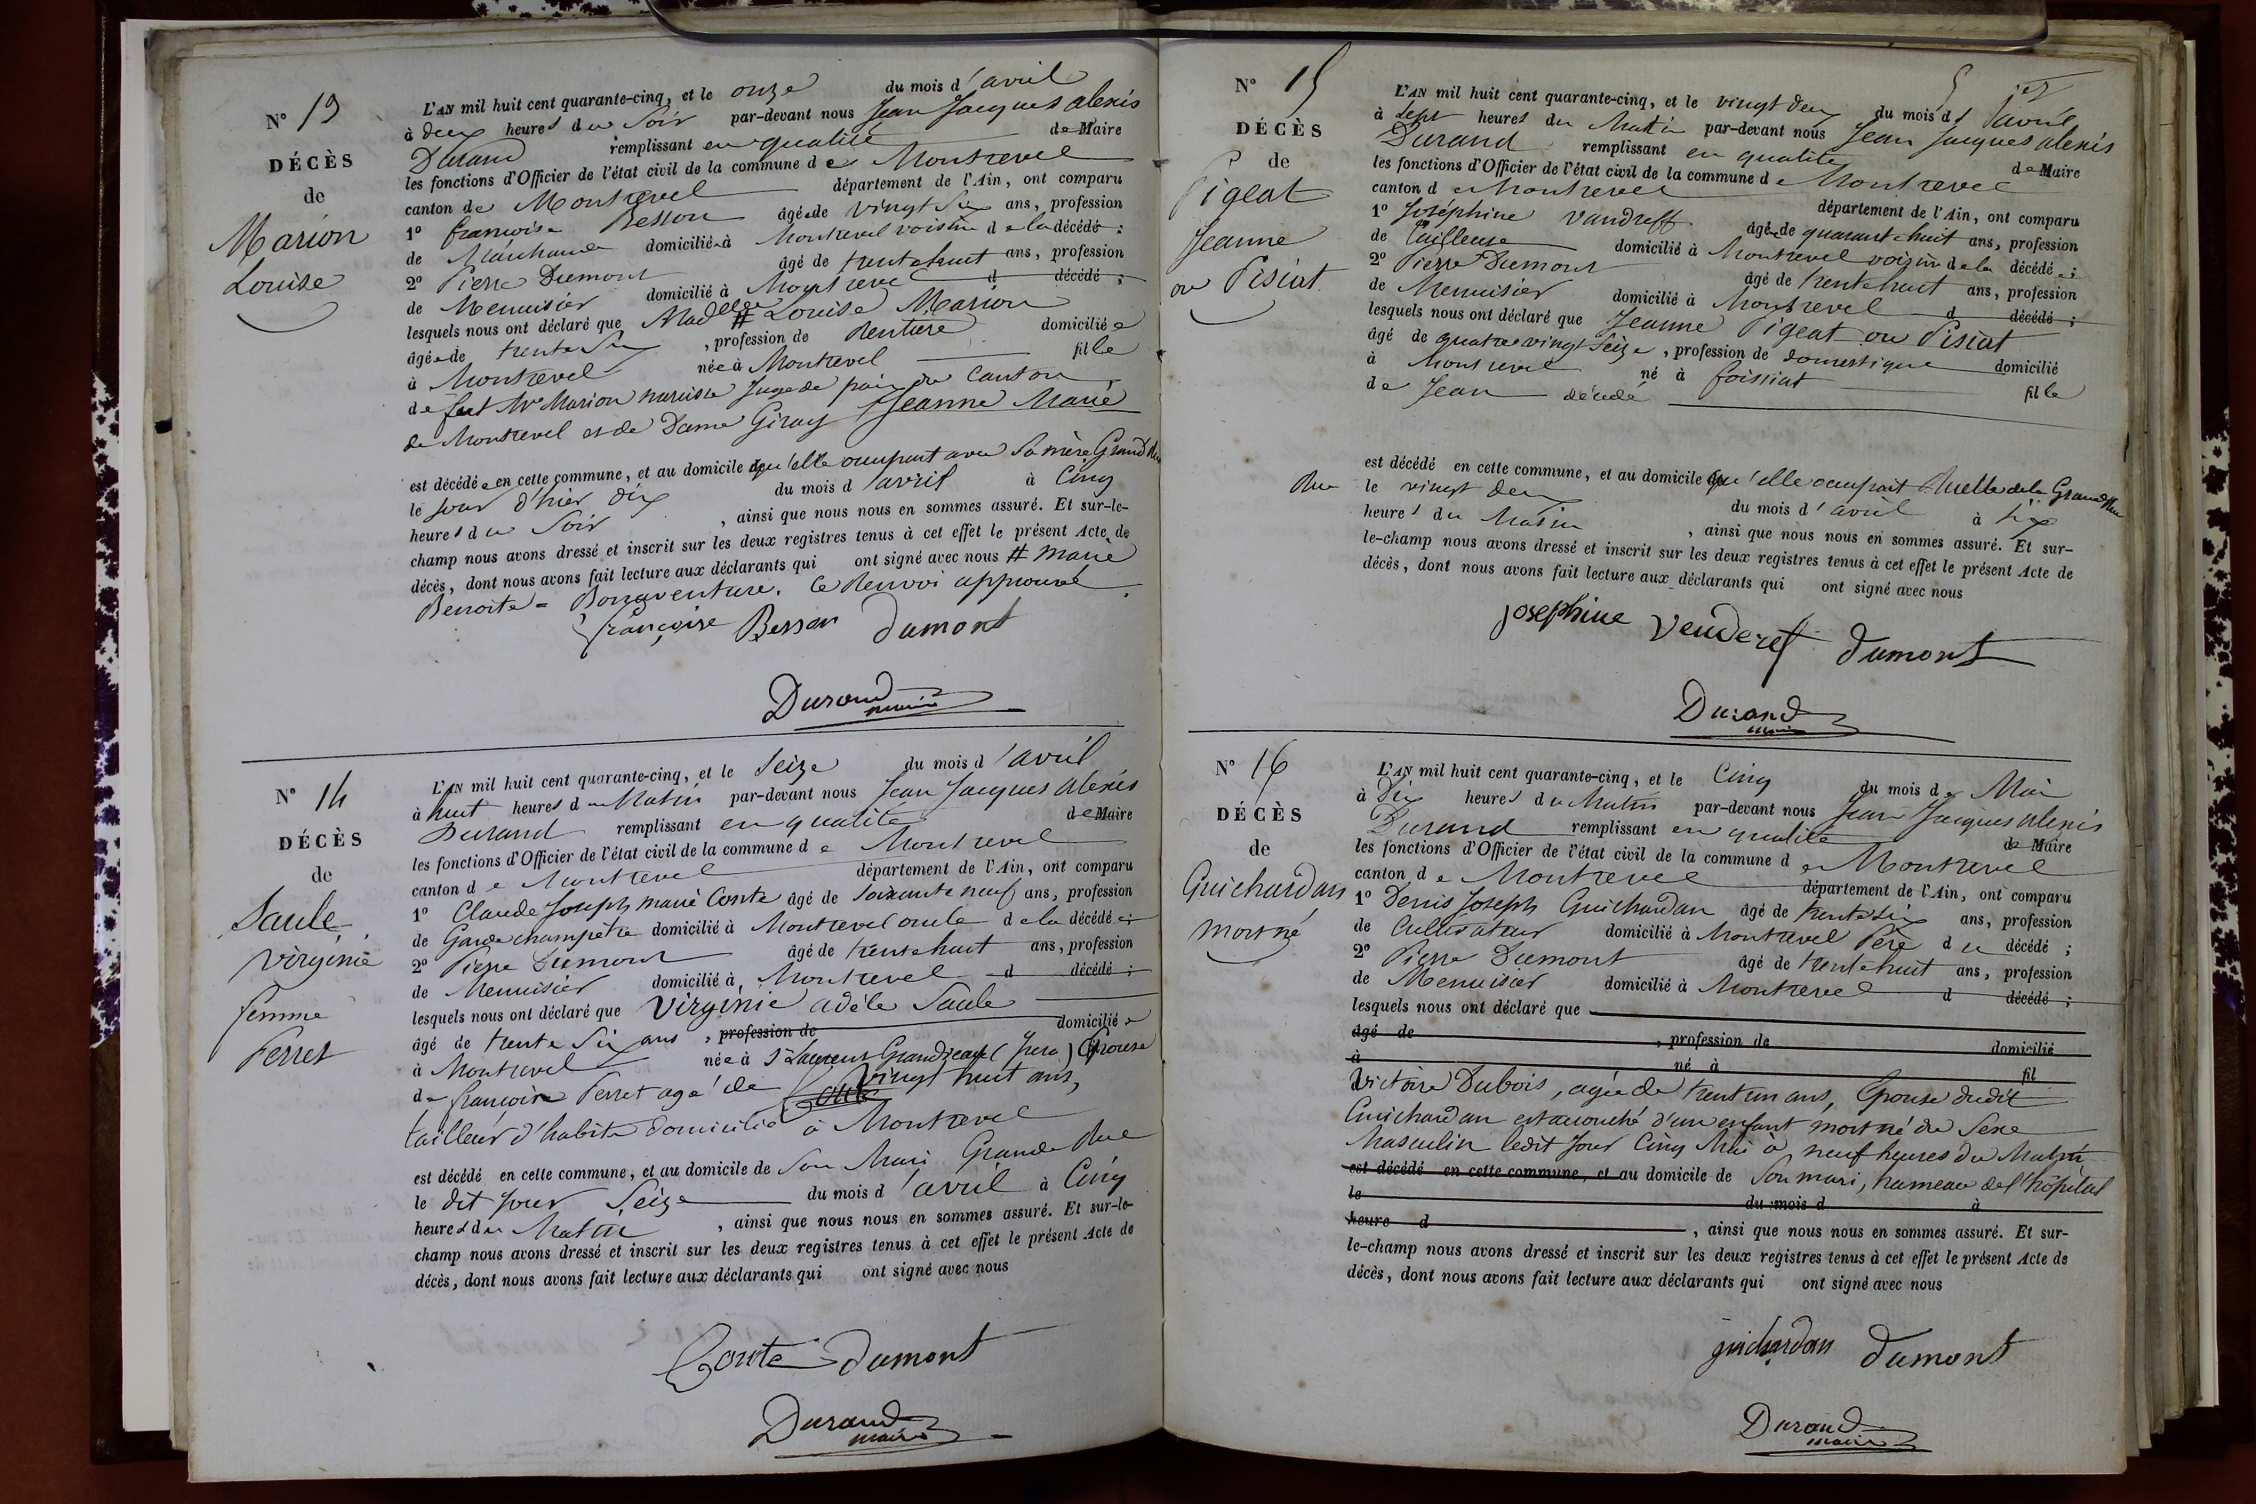 N° 13
DÉCÈS
de
Marion
Louise
L'AN mil huit cent quarante-cinq, et le onze du mois d'avril
à deux heures du Soir par-devant nous Jean Jacques alexis
Durand remplissant en qualité de Maire
les fonctions d'Officier de l'état civil de la commune de Montrevel
canton de Montrevel département de l'Ain, ont comparu
1° françoise Besson âgée de vingt six ans, profession
de Marchande domiciliée à Montrevel voisine de la décédée ;
2° Pierre Dumont âgé de trente huit ans, profession
de Menuisier domicilié à Montrevel d décédé ;
lesquels nous ont déclaré que Madelle # Louise Marion
âgée de trente six , profession de Rentière domiciliée
à Montrevel née à Montrevel fille
de feut Mr Marion narcisse Juge de paix du Canton
de Montrevel et de Dame Giray Jeanne Marie
est décédée en cette commune, et au domicile qu'elle occupait avec Sa mère Grand Rue
le jour d'hier dix du mois d'avril à Cinq
heures du Soir , ainsi que nous nous en sommes assuré. Et sur-le-
champ nous avons dressé et inscrit sur les deux registres tenus à cet effet le présent Acte de
décès, dont nous avons fait lecture aux déclarants qui ont signé avec nous # Marie
Benoite = Bonaventure. Ce Renvoi approuvé.
françoise Besson dumont
Durand
maire
N° 14
DÉCÈS
de
Saule
virginie
femme
Ferret
L'AN mil huit cent quarante-cinq, et le Seize du mois d'avril
à huit heures du Matin par-devant nous Jean Jacques Alexis
Durand remplissant en qualité de Maire
les fonctions d'Officier de l'état civil de la commune de Montrevel
canton de Montrevel département de l'Ain, ont comparu
1° Claude Joseph marie Conte âgé de soixante neuf ans, profession
de Garde champêtre domicilié à Montrevel oncle de la décédée ;
2° Pierre Dumont âgé de trente huit ans, profession
de Menuisier domicilié à Montrevel d décédé ;
lesquels nous ont déclaré que Virginie adèle Saule
âgé de trente Six ans , profession de domiciliée
à Montrevel née à St Laurent Grandvaux (Jura) Epouse
de françois Ferret agé de vingt huit ans,
tailleur d'habits domicilié à Montrevel
est décédé en cette commune, et au domicile de Son Mari Grande Rue
le dit jour Seize du mois d'avril à Cinq
heures du Matin , ainsi que nous nous en sommes assuré. Et sur-le-
champ nous avons dressé et inscrit sur les deux registres tenus à cet effet le présent Acte de
décès, dont nous avons fait lecture aux déclarants qui ont signé avec nous
Conte dumont
Durand
maire
N° 15
DÉCÈS
de
Pigeat
Jeanne
ou Pisiat
L'AN mil huit cent quarante-cinq, et le vingt deux du mois d'avril
à Sept heures du Matin par-devant nous Jean Jacques alexis
Durand remplissant en qualité de Maire
les fonctions d'Officier de l'état civil de la commune de Montrevel
canton de Montrevel département de l'Ain, ont comparu
1° Joséphine Vandreff âgée de quarante huit ans, profession
de Tailleuse domicilié à Montrevel voisine de la décédée ;
2° Pierre Dumont âgé de trente huit ans, profession
de Menuisier domicilié à Montrevel d décédé ;
lesquels nous ont déclaré que Jeanne Pigeat ou Pisiat
âgé de quatre vingt Seize , profession de domestique domicilié
à Montrevel né à foissiat fille
de Jean décédé
est décédé en cette commune, et au domicile qu'elle occupait Ruelle de la Grand Rue
Rue le vingt deux du mois d'avril à Six
heures du Matin , ainsi que nous nous en sommes assuré. Et sur-
le-champ nous avons dressé et inscrit sur les deux registres tenus à cet effet le présent Acte de
décès, dont nous avons fait lecture aux déclarants qui ont signé avec nous
josephine venderef dumont
Durand
maire
N° 16
DÉCÈS
de
Guichardan
mort né
L'AN mil huit cent quarante-cinq, et le Cinq du mois de Mai
à Dix heures du Matin par-devant nous Jean Jacques Alexis
Durand remplissant en qualité de Maire
les fonctions d'Officier de l'état civil de la commune de Montrevel
canton de Montrevel département de l'Ain, ont comparu
1° Denis Joseph Guichardan âgé de trente six ans, profession
de Cultivateur domicilié à Montrevel Père du décédé ;
2° Pierre Dumont âgé de trente huit ans, profession
de Menuisier domicilié à Montrevel d décédé ;
lesquels nous ont déclaré que
âgé de , profession de domicilié
à né à fil
Victoire Dubois, agée de trent un ans, Epouse dudit
Guichardan est accouché d'un enfant mort né du Sexe
Masculin ledit Jour Cinq Mai à neuf heures du Matin
est décédé en cette commune, et au domicile de Son mari, hameau de l'hôpital
le du mois d à
heure d , ainsi que nous nous en sommes assuré. Et sur-
le-champ nous avons dressé et inscrit sur les deux registres tenus à cet effet le présent Acte de
décès, dont nous avons fait lecture aux déclarants qui ont signé avec nous
guichardan dumont
Durand
maire